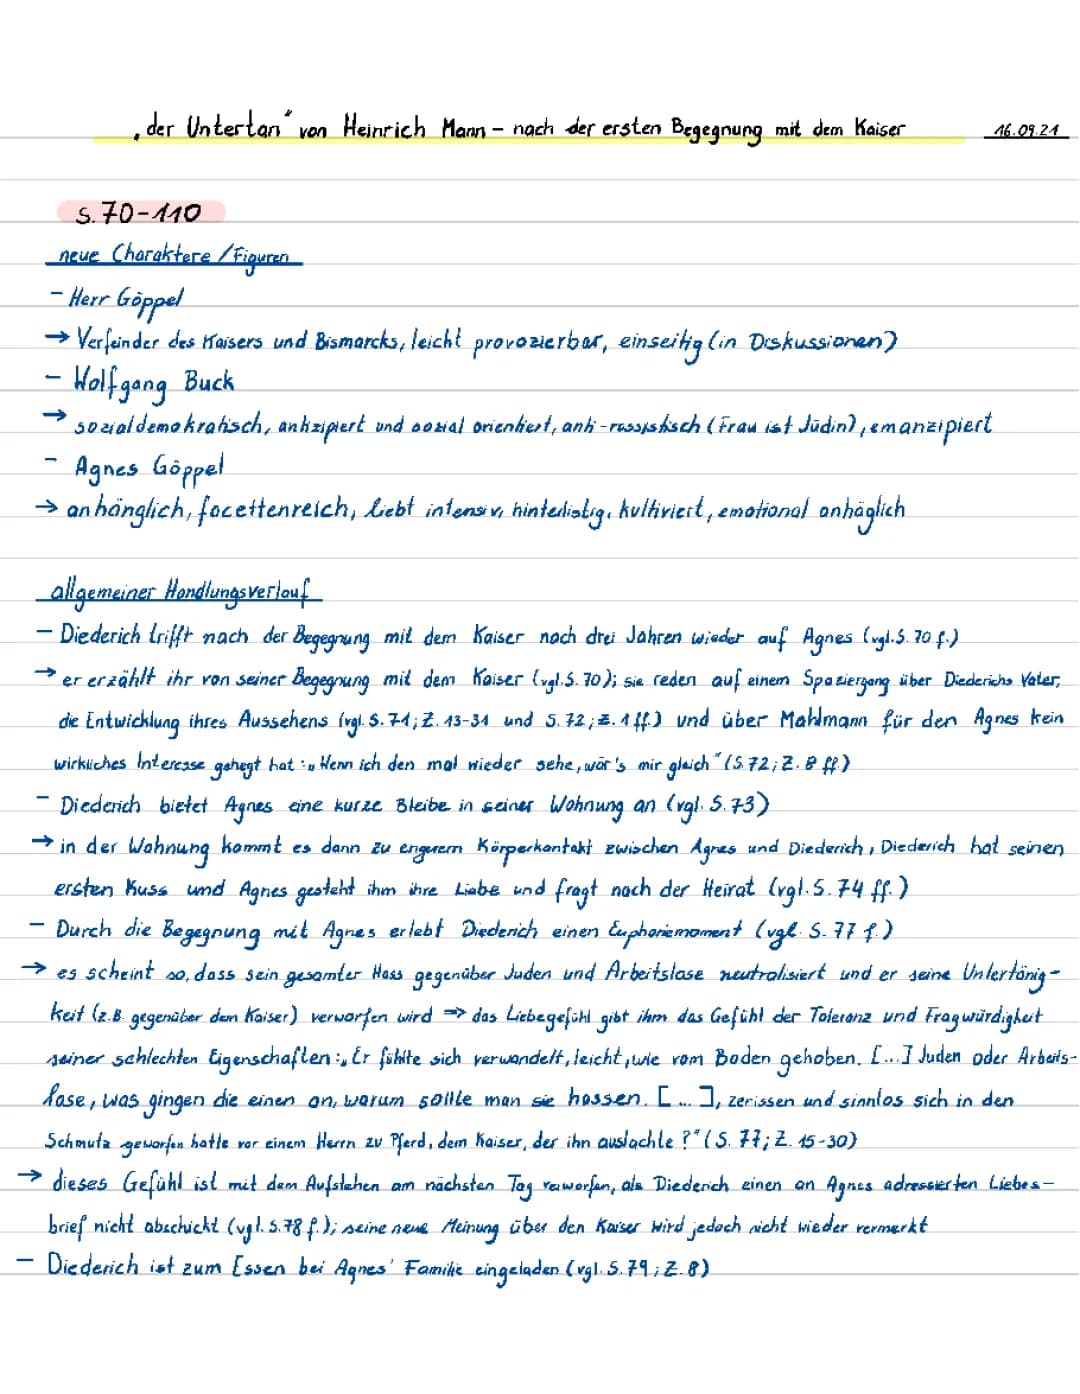 „der Untertan“ von Heinrich Mann – nach der ersten Begegnung mit dem Kaiser 16.09.21
S. 70-110
neue Charaktere / Figuren
- Herr Göppel
→ Verfeinder des Kaisers und Bismarcks, leicht provozierbar, einseitig (in Diskussionen)
- Wolfgang Buck
→ sozialdemokratisch, antizipiert und sozial orientiert, anti-rassistisch (Frau ist Jüdin), emanzipiert
- Agnes Göppel
→ anhänglich, facettenreich, liebt intensiv, hinterlistig, kultiviert, emotional anhäglich
allgemeiner Handlungsverlauf
- Diederich trifft nach der Begegnung mit dem Kaiser nach drei Jahren wieder auf Agnes (vgl. S. 70 f.)
→ er erzählt ihr von seiner Begegnung mit dem Kaiser (vgl. S. 70); sie reden auf einem Spaziergang über Diederichs Vater,
die Entwicklung ihres Aussehens (vgl. S. 71; Z. 13-31 und S. 72; Z. 1 ff.) und über Mahlmann für den Agnes kein
wirkliches Interesse gehegt hat: „Wenn ich den mal wieder sehe, wär's mir gleich“ (S. 72; Z. 8 ff.)
- Diederich bietet Agnes eine kurze Bleibe in seiner Wohnung an (vgl. S. 73)
→ in der Wohnung kommt es dann zu engerem Körperkontakt zwischen Agnes und Diederich, Diederich hat seinen
ersten Kuss und Agnes gesteht ihm ihre Liebe und fragt nach der Heirat (vgl. S. 74 ff.)
- Durch die Begegnung mit Agnes erlebt Diederich einen Euphoriemoment (vgl. S. 77 f.)
→ es scheint so, dass sein gesamter Hass gegenüber Juden und Arbeitslose neutralisiert und er seine Untertänig-
keit (z.B. gegenüber dem Kaiser) verworfen wird ⇒ das Liebegefühl gibt ihm das Gefühl der Toleranz und Fragwürdigheit
seiner schlechten Eigenschaften: „Er fühlte sich verwandelt, leicht, wie vom Boden gehoben. [...] Juden oder Arbeis-
lose, was gingen die einen an, warum sollte man sie hassen. [...], zerissen und sinnlos sich in den
Schmutz geworfen hatte vor einem Herrn zu Pferd, dem Kaiser, der ihn auslachte?“ (S. 77; Z. 15-30)
→ dieses Gefühl ist mit dem Aufstehen am nächsten Tag verworfen, als Diederich einen an Agnes adressierten Liebes-
brief nicht abschickt (vgl. S. 78 f.); seine neue Meinung über den Kaiser wird jedoch nicht wieder vermerkt
- Diederich ist zum Essen bei Agnes' Familie eingeladen (vgl. S. 79; Z. 8)